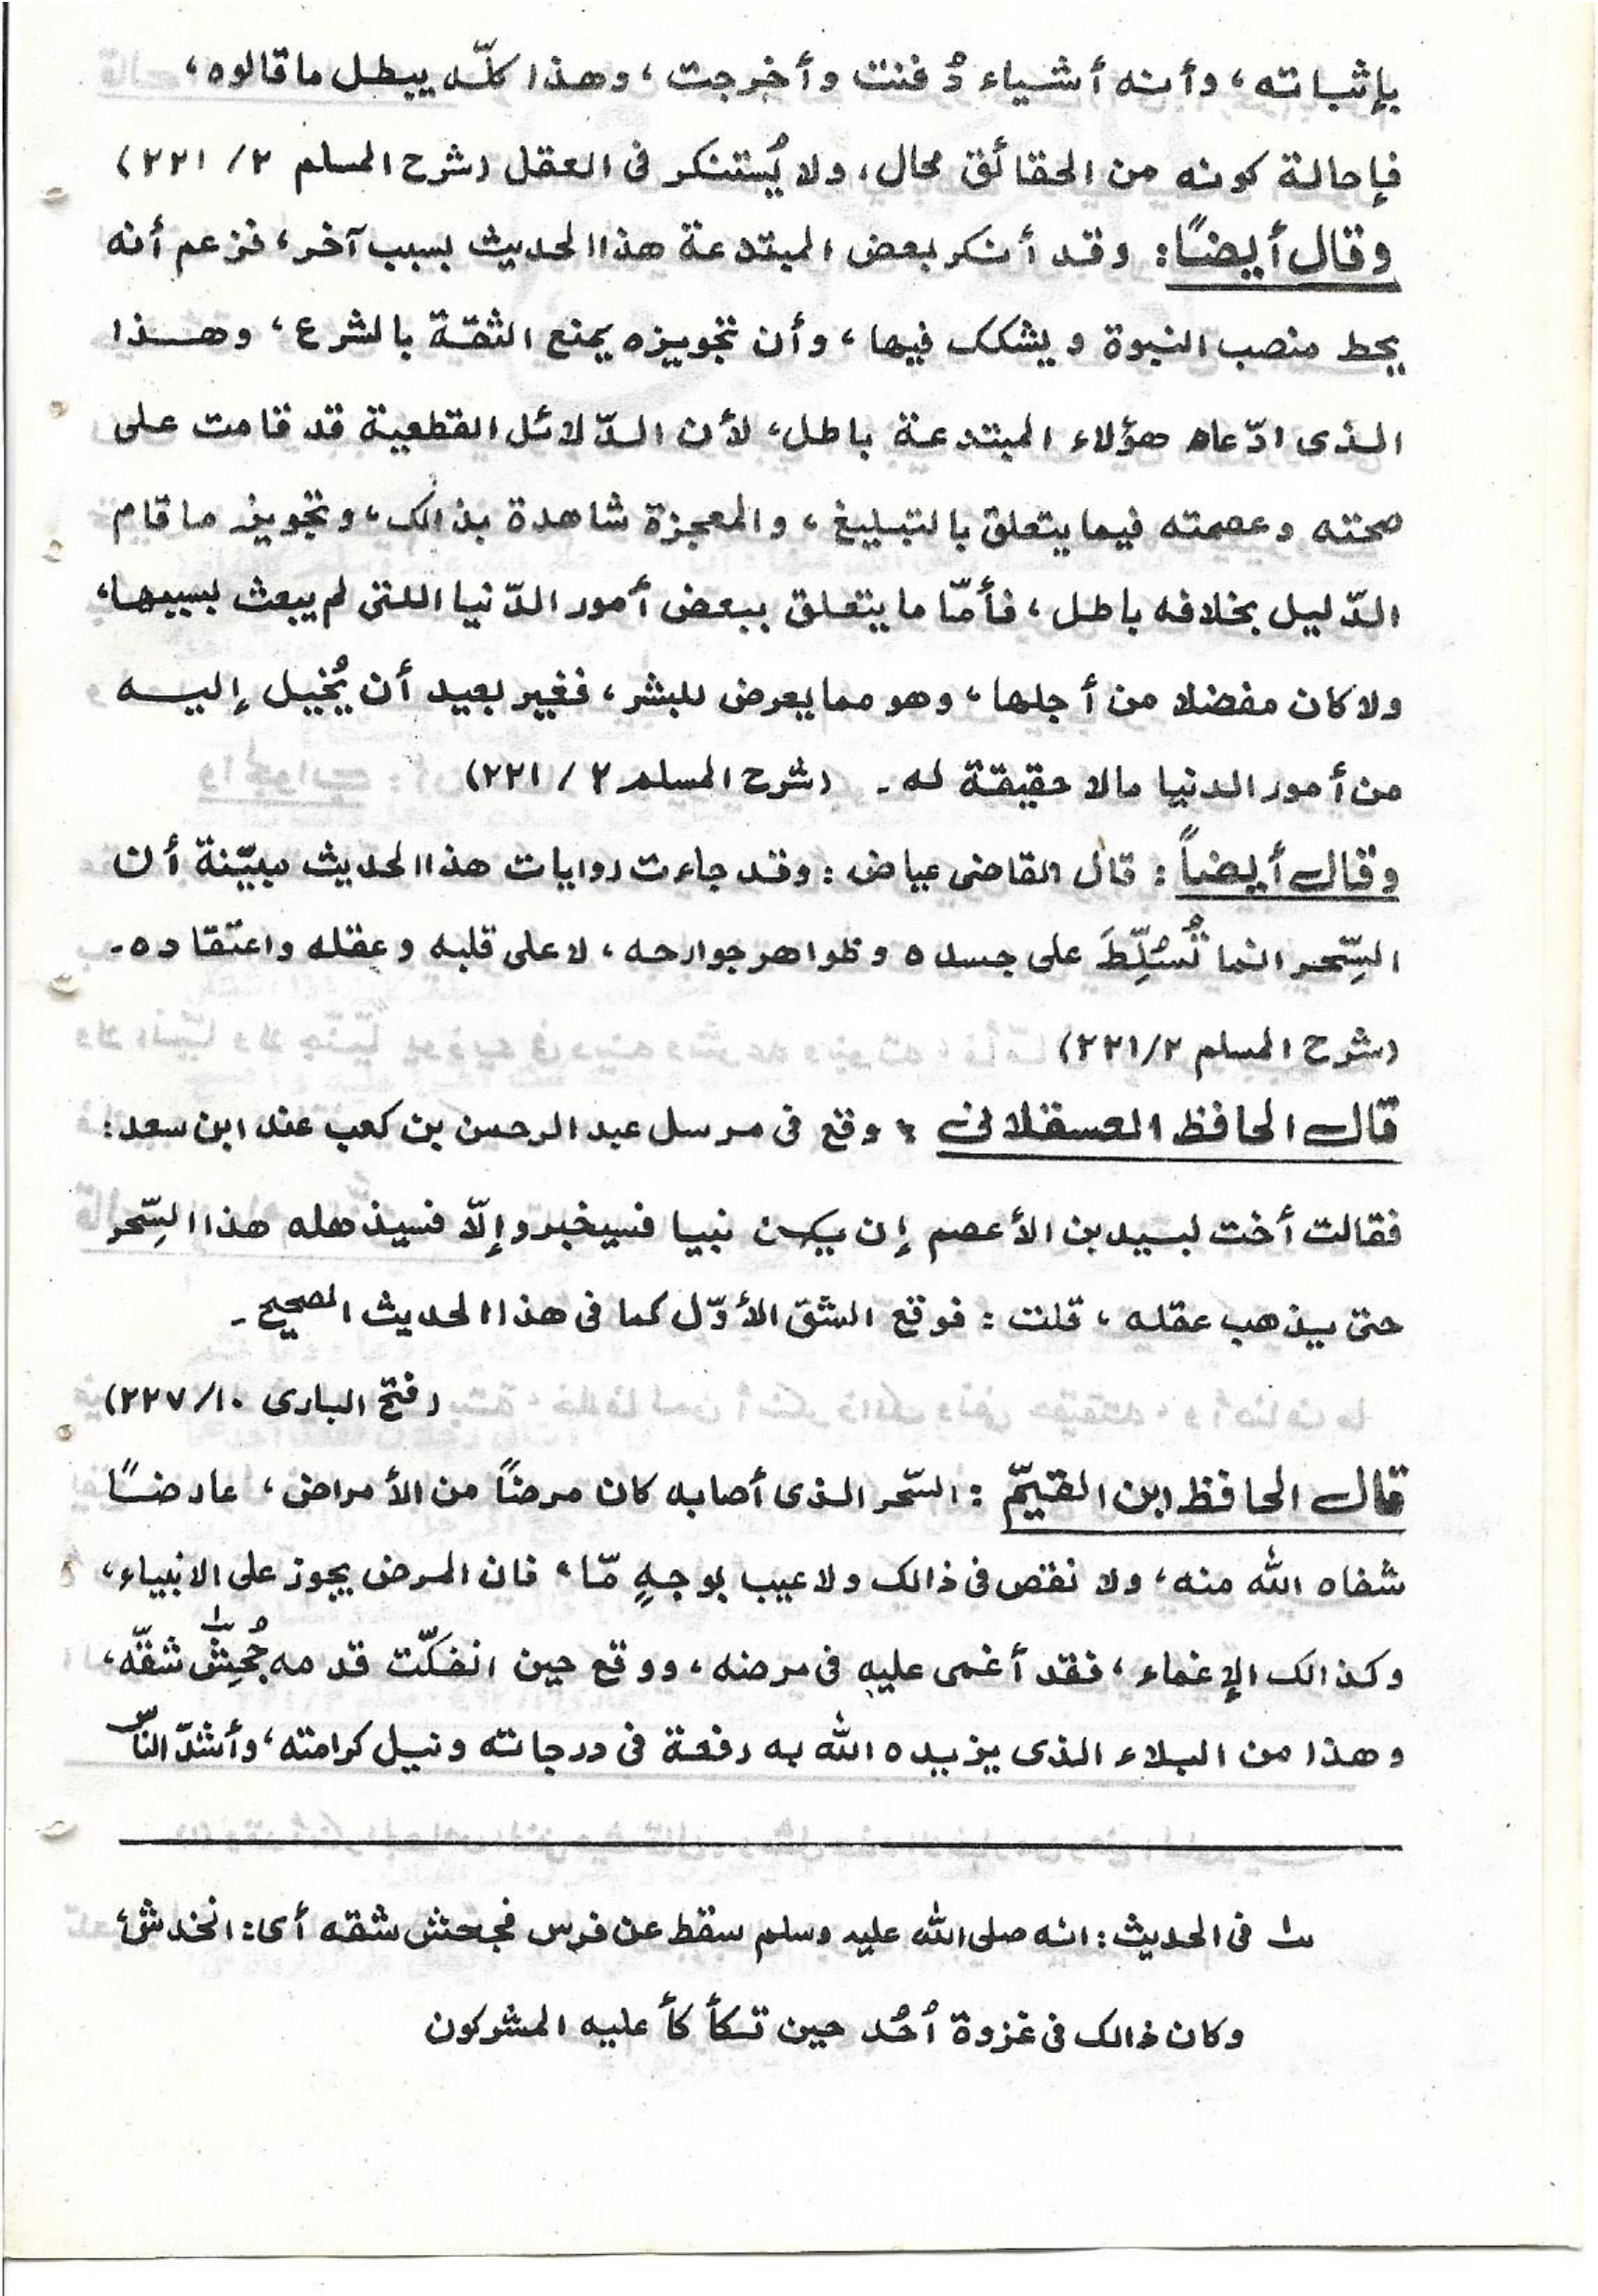 بإثباته، وأنه أشياء دُفنت وأخرجت، وهذا كلّه يبطل ما قالوه،
فإحالة كونه من الحقائق محال، ولا يُستنكر فى العقل (شرح المسلم ٢/ ٢٢١)
وقال أيضًا: وقد أنكر بعض المبتدعة هذا الحديث بسبب آخر، فزعم أنه
يحط منصب النبوة ويشكك فيها، وأن تجويزه يمنع الثقة بالشرع، وهذا
الذى ادّعاه هؤلاء المبتدعة باطل، لأن الدّلائل القطعية قد قامت على
صحته وعصمته فيما يتعلق بالتبليغ، والمعجزة شاهدة بذالك، وتجويز ما قام
الدّليل بخلافه باطل، فأمّا ما يتعلق ببعض أمور الدّنيا اللتى لم يبعث بسببها،
ولا كان مفضلا من أجلها، وهو مما يعرض للبشر، فغير بعيد أن يُخيل إليه
من أمور الدنيا مالا حقيقة له۔ (شرح المسلم ٢ / ٢٢١)
وقال أيضاً: قال القاضى عياض: وقد جاءت روايات هذا الحديث مبيّنة أن
السِّحر انما تُسُلِّطَ على جسده وظواهر جوارحه، لا على قلبه وعقله واعتقاده۔
(شرح المسلم ٢/ ٢٢١)
قال الحافظ العسقلانى: وقع فى مرسل عبد الرحمن بن كعب عند ابن سعد:
فقالت أخت لبيد بن الأعصم إن يكن نبيا فسيخبر وإلّا فسيذهله هذا السِّحر
حتى يذهب عقله، قلت: فوقع الشق الأوّل كما فى هذا الحديث الصحيح۔
(فتح البارى ١٠/ ٢٢٧)
قال الحافظ ابن القيّم: السّحر الذى أصابه كان مرضاً من الأمراض، عارضًا
شفاه الله منه، ولا نقص فى ذالك ولا عيب بوجهٍ مّا، فان المرض يجوز على الانبياء،
وكذالك الإغماء، فقد أغمى عليه فى مرضه، ووقع حين انفكّت قدمه جُحِشَ ١ شقّه،
وهذا من البلاء الذى يزيده الله به رفعة فى درجاته ونيل كرامته، وأشدّ النّاس
١ فى الحديث: انه صلى الله عليه وسلم سقط عن فرس فجحش شقه أى: انخدش،
وكان ذالك فى غزوة أُحُد حين تكأكأ عليه المشركون